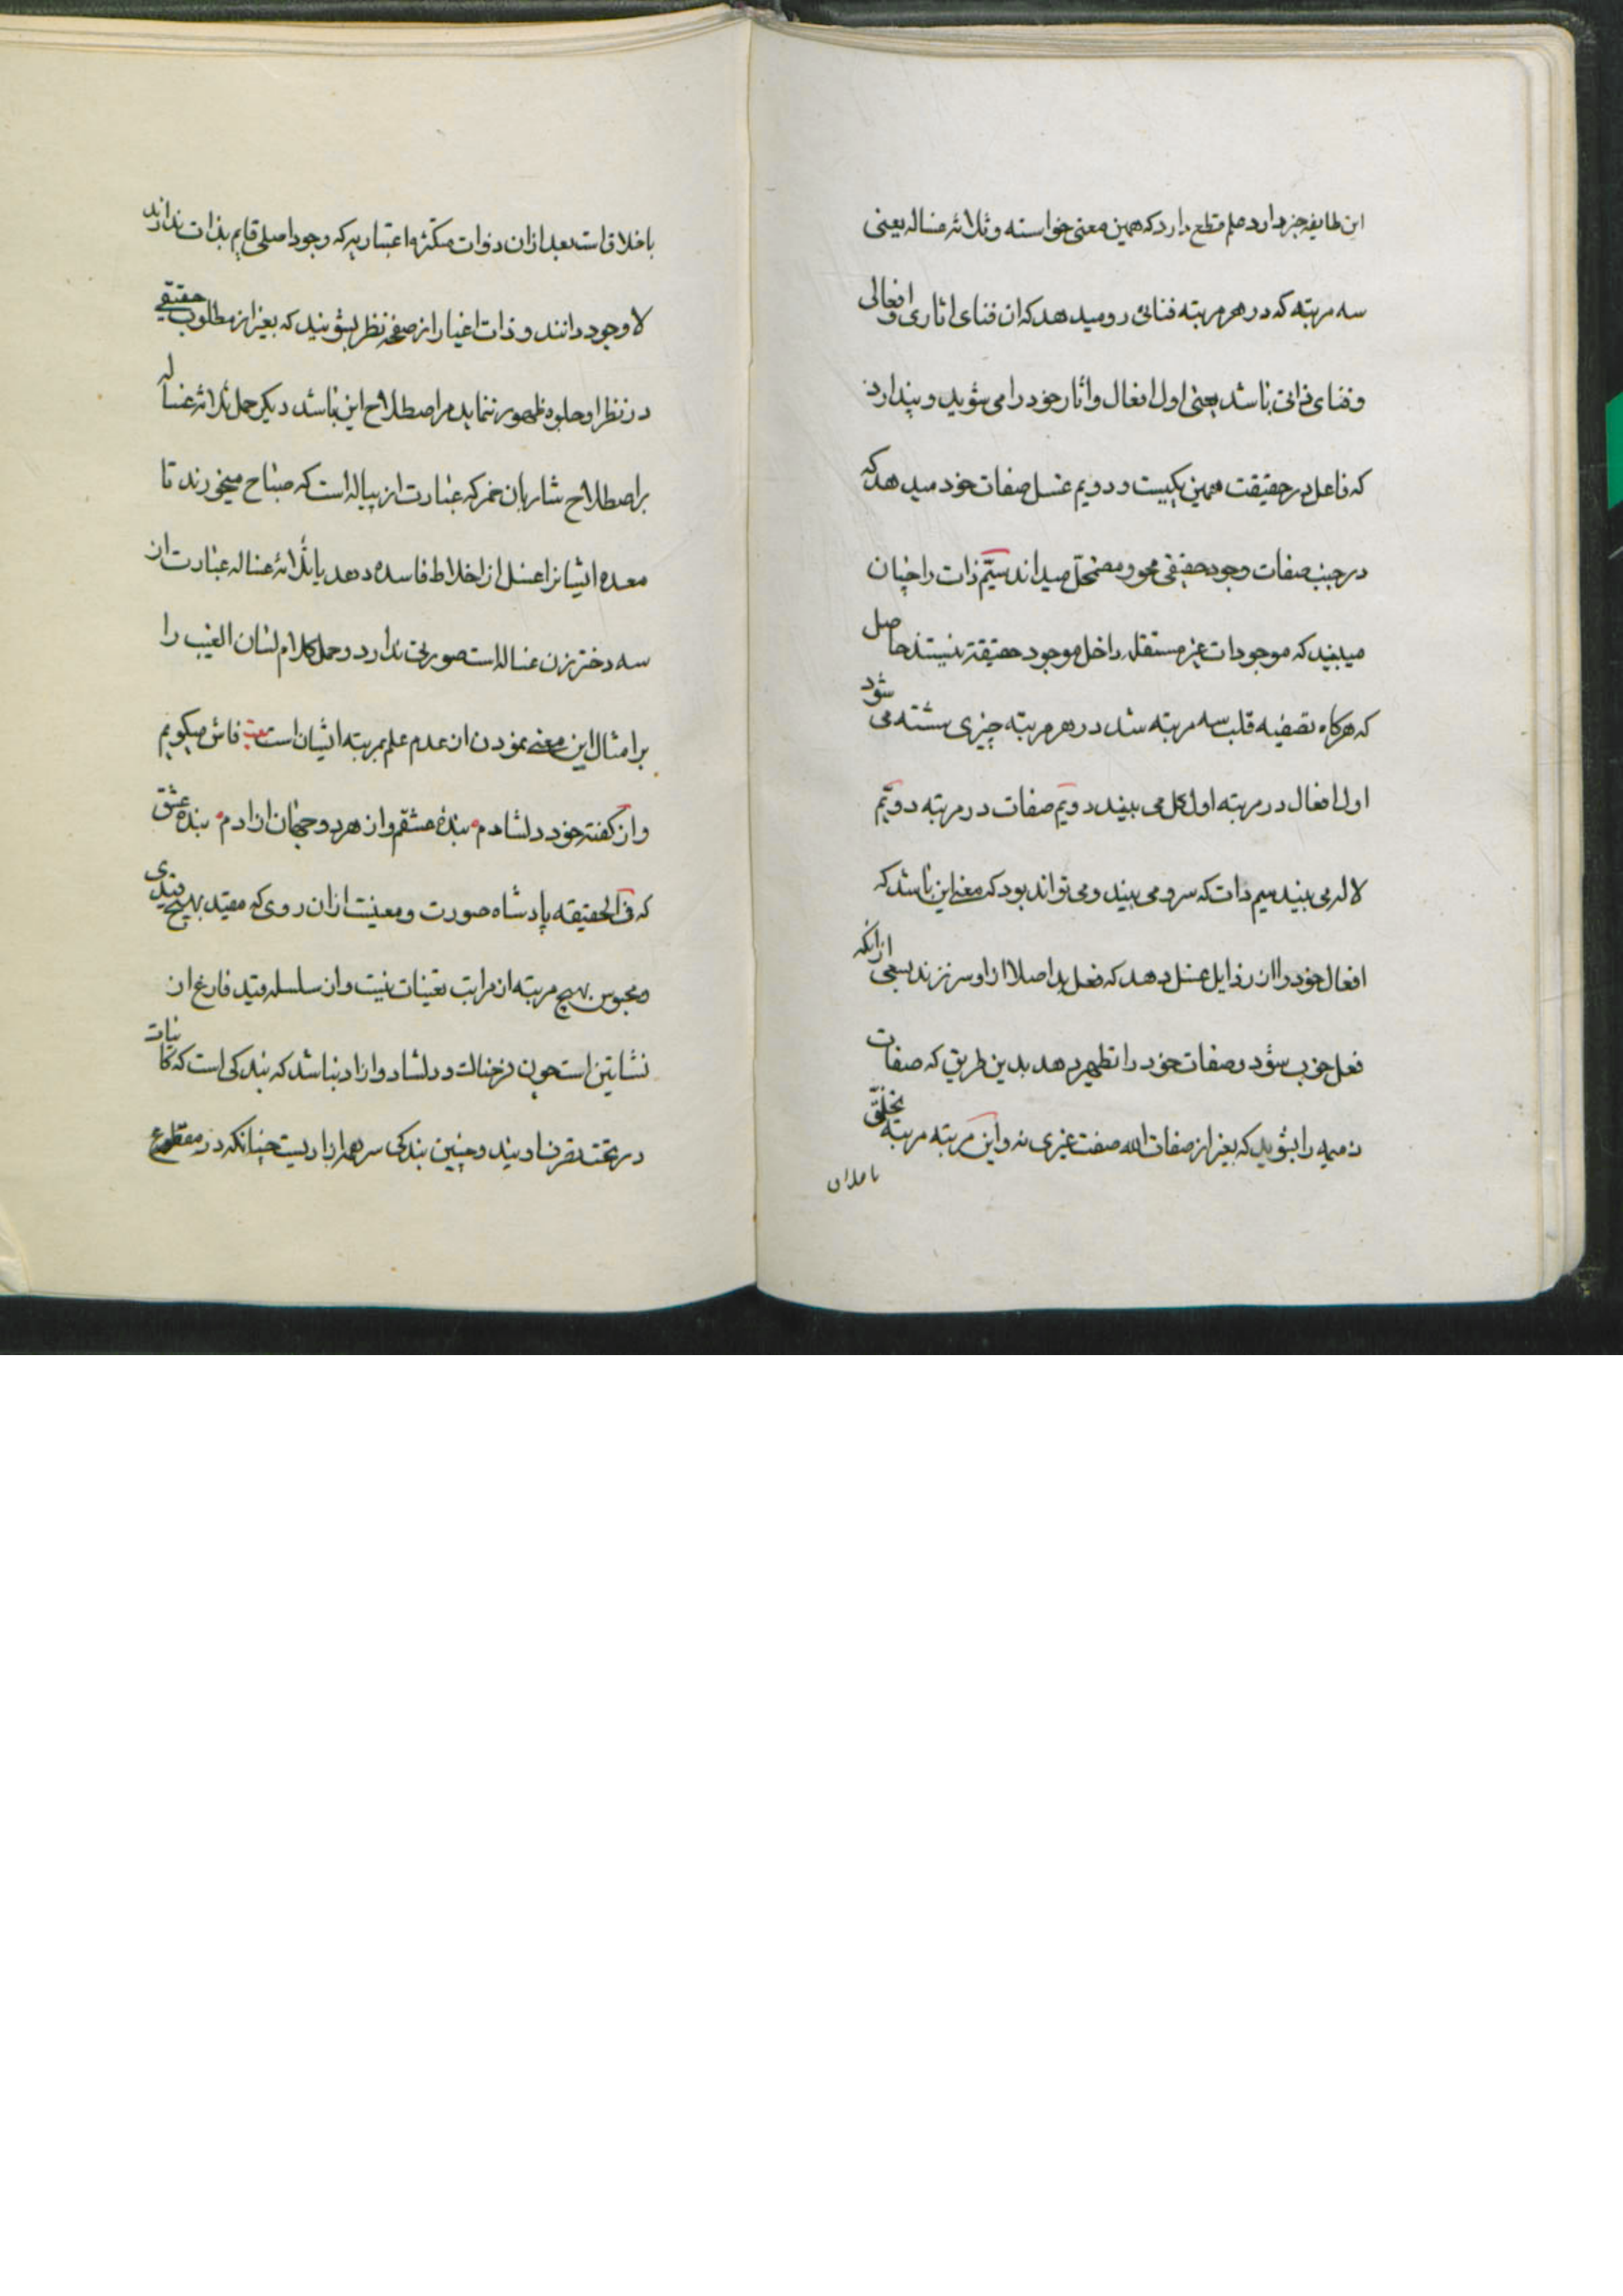 این طایفه خبر دارد علم قطع دارد که همین معنی خواسته و ثلاثه غساله یعنی
سه مرتبه که در هر مرتبه فنائی رو میدهد که ان فنای اثاری و افعالی
و فنای ذاتی باشد یعنی اول افعال و اثار خود را می شوید و پندارد
که فاعل در حقیقت همین یکیست و دویم غسل صفات خود میدهد که
در جنب صفات وجود حقیقی محو و مضمحل میداند سیّم ذات را چنان
میبیند که موجودات غیر مستقل داخل موجود حقیقة نیستند حاصل
که هرکاه تصفیه قلب سه مرتبه شد در هر مرتبه چیزی شسته می شود
اول افعال در مرتبه اول کل می بیند دویّم صفات در مرتبه دویّم
لاله می بیند سیم ذات که سرو می بیند و می تواند بود که معنی این باشد که
افعال خود را از رذایل غسل دهد که فعل بد اصلا از او سر نزند بسعی از آنکه
فعل خوب شود و صفات خود را تطهیر دهد بدین طریق که صفات
ذمیمه را بشوید که بغیر از صفات الله صفت غیری نه و این مرتبه مرتبه تخلّق
باخلاق است بعد از ان ذوات متکثره اعتباریه که وجود اصلی قایم بذات ندارند
لا وجود دانند و ذات اغیار را از صفحه نظر بشویند که بغیر از مطلوب حقیقی
در نظر او جلوه ظهور ننماید مر اصطلاح این باشد دیکر حمل ثلاثه غساله
بر اصطلاح شاربان خمر که عبارت از پیاله است که صباح میخورند تا
معده ایشانرا غسل از اخلاط فاسده دهد یا ثلاثه غساله عبارت از
سه دختر زن غساله است صورتی ندارد و حمل کلام لسان الغیب را
بر امثال این معنی نمودن از عدم علم بمرتبه ایشان است بیت فاش میکویم
و از کفته خود دلشادم بنده عشقم و از هر دو جهان ازادم بنده عشق
که فی الحقیقه پادشاه صورت و معنیست از ان روی که مقید بهیچ قیدی
و محبوس بهیچ مرتبه از مراتب تعینات نیست و از سلسله قید فارغ از
نشاتین است چون فرخنالت و دلشاد و ازاد نباشد که بندکی است که کاینات
در تحت تصرف اویند و چنین بندکی سر همه ازادیست چنانکه در مقطع